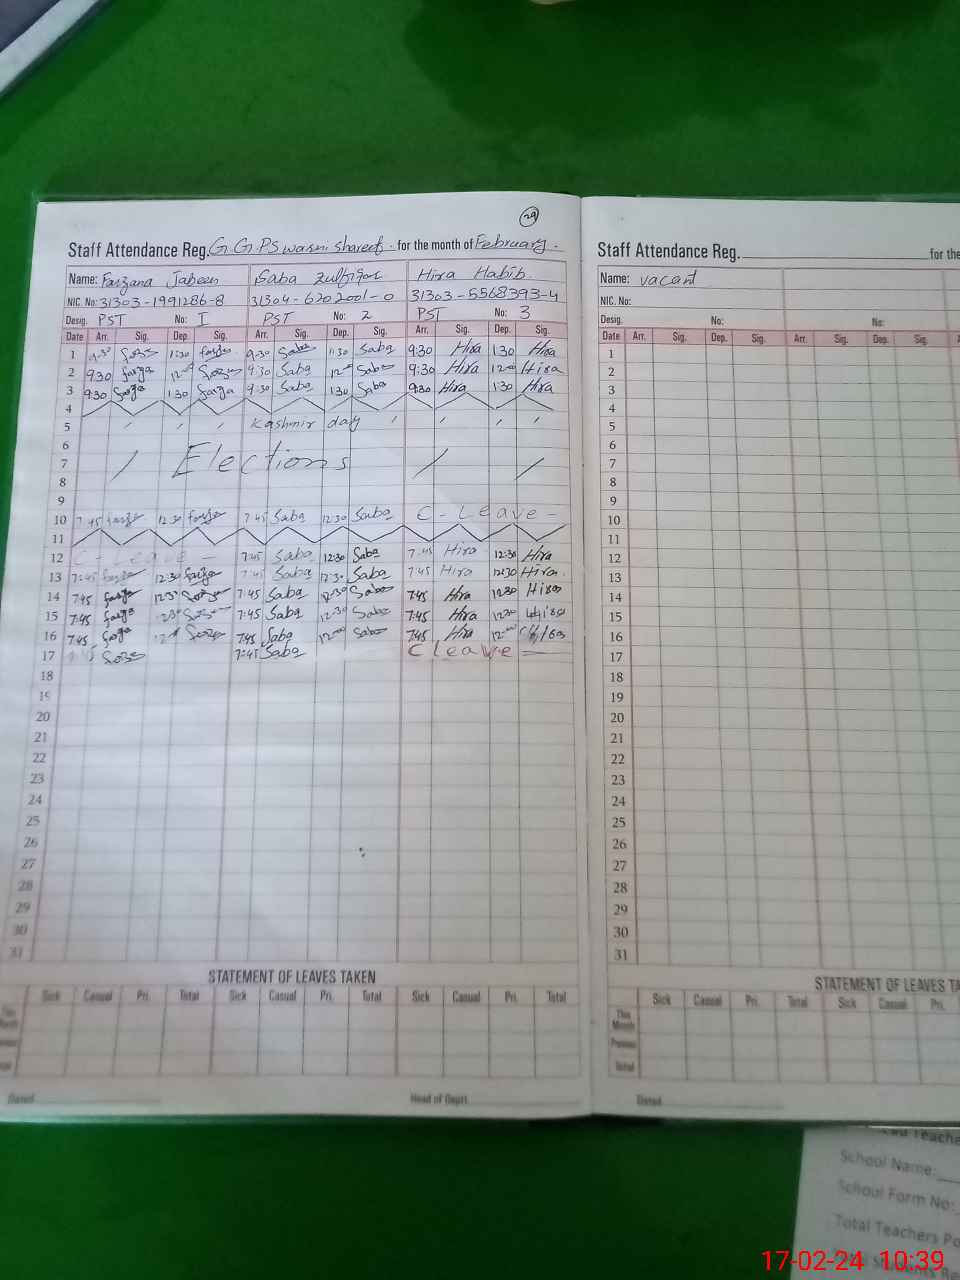 29
Staff Attendance Reg. G.G.PS waisni shareef. for the month of February.
Name: Farzana Jabeen Saba Zulfiqar Hira Habib
NIC. No: 31303-1991286-8 31304-6202001-0 31303-5568393-4
Desig. PST No: I PST No: 2 PST No: 3
Date Arr. Sig. Dep. Sig. Arr. Sig. Dep. Sig. Arr. Sig. Dep. Sig.
1 9:30 1:30 9:30 Saba 1:30 Saba 9:30 Hira 1:30 Hira
2 9:30 Farza 12:00 9:30 Saba 12:00 Saba 9:30 Hira 12:00 Hira
3 9:30 Farza 1:30 Farza 9:30 Saba 1:30 Saba 9:30 Hira 1:30 Hira
4
5 Kashmir day
6
7 Elections
8
9
10 7:45 12:30 7:45 Saba 12:30 Saba C-Leave-
11
12 C-Leave- 7:45 Saba 12:30 Saba 7:45 Hira 12:30 Hira
13 7:45 Farza 12:30 Farza 7:45 Saba 12:30 Saba 7:45 Hira 12:30 Hira.
14 7:45 Farza 12:30 7:45 Saba 12:30 Saba 7:45 Hira 12:30 Hira
15 7:45 Farza 12:30 7:45 Saba 12:30 Saba 7:45 Hira 12:30
16 7:45 Farza 12:00 7:45 Saba 12:00 Saba 7:45 Hira 12:00
17 7:45 Saba C Leave —
18
19
20
21
22
23
24
25
26
27
28
29
30
31
STATEMENT OF LEAVES TAKEN
Sick Casual Pri. Total Sick Casual Pri. Total Sick Casual Pri. Total
This Month
Previous
Total
Dated Head of Deptt.
Staff Attendance Reg. for the
Name: vacant
NIC. No:
Desig. No: No:
Date Arr. Sig. Dep. Sig. Arr. Sig. Dep. Sig.
1
2
3
4
5
6
7
8
9
10
11
12
13
14
15
16
17
18
19
20
21
22
23
24
25
26
27
28
29
30
31
STATEMENT OF LEAVES TA
Sick Casual Pri. Total Sick Casual Pri.
This Month
Previous
Total
Dated
Teache
School Name:
School Form No:
Total Teachers Po
Students Re
17-02-24 10:39